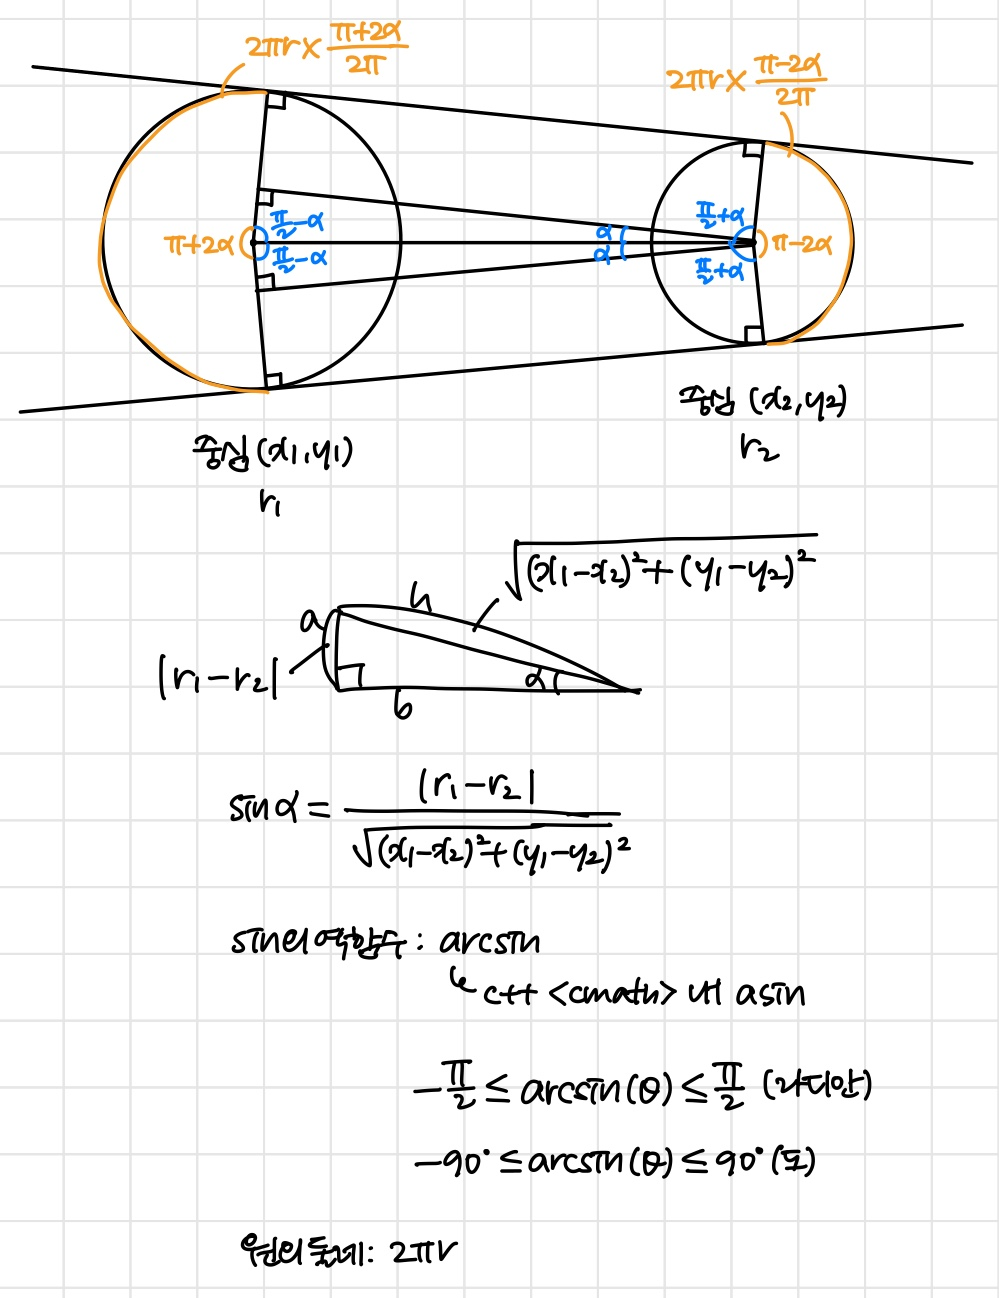 2πr× (π+2α)/2π
2πr× (π-2α)/2π
π/2-α
π/2+α
π+2α
α
π-2α
π/2-α
α
π/2+α
중심 (x2,y2)
r2
중심 (x1,y1)
r1
√(x1-x2)²+(y1-y2)²
h
a
|r1-r2|
α
b
sinα = |r1-r2| / √(x1-x2)²+(y1-y2)²
sin의 역함수 : arcsin
c++ <cmath> 내 asin
-π/2 ≤ arcsin(θ) ≤ π/2 (라디안)
-90° ≤ arcsin(θ) ≤ 90° (도)
원의 둘레: 2πr